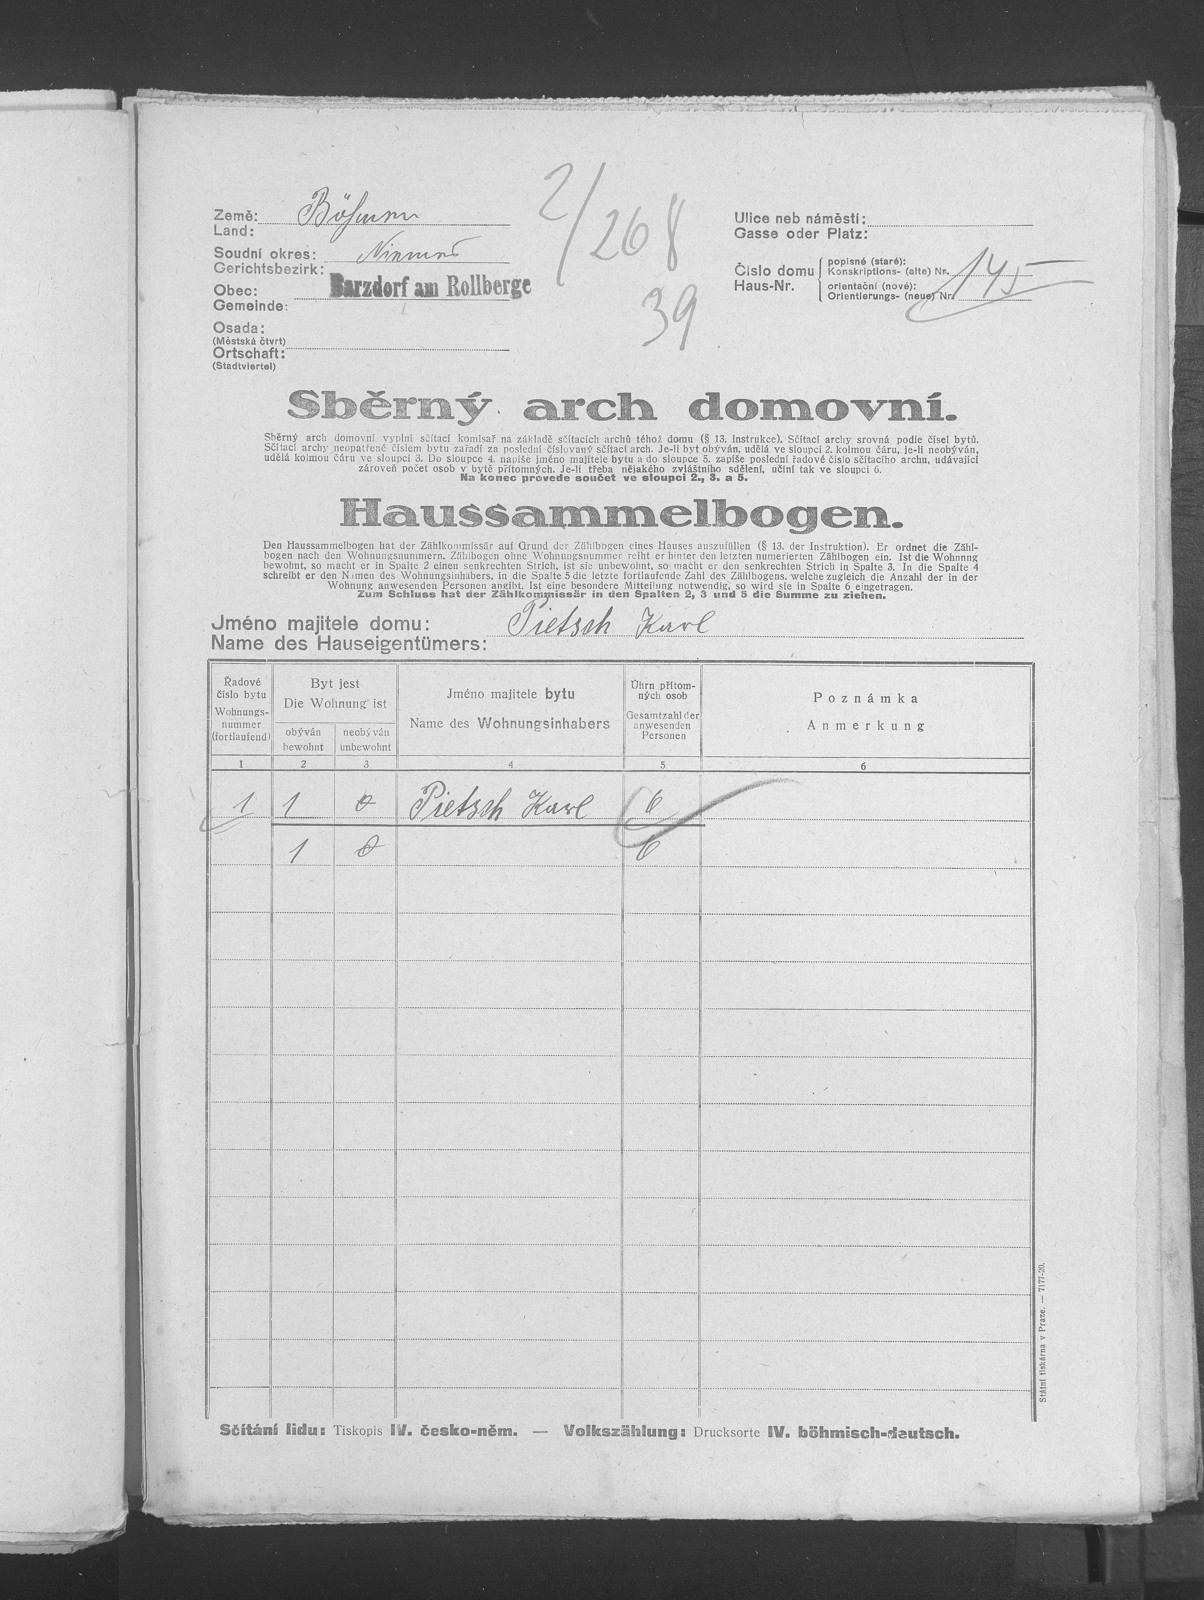 Země: Böhmen
Land:
Soudní okres: Niemes
Gerichtsbezirk:
Obec: Barzdorf am Rollberge
Gemeinde:
Osada:
(Městská čtvrt)
Ortschaft:
(Stadtviertel)
2/268
39
Ulice neb náměstí:
Gasse oder Platz:
Číslo domu popisné (staré): 145
Haus-Nr. Konskriptions- (alte) Nr.
orientační (nové):
Orientierungs- (neue) Nr.
Sběrný arch domovní.
Sběrný arch domovní vyplní sčítací komisař na základě sčítacích archů téhož domu (§ 13. instrukce). Sčítací archy srovná podle čísel bytů.
Sčítací archy neopatřené číslem bytu zařadí za poslední číslovaný sčítací arch. Je-li byt obýván, udělá ve sloupci 2. kolmou čáru, je-li neobýván,
udělá kolmou čáru ve sloupci 3. Do sloupce 4. napíše jméno majitele bytu a do sloupce 5. zapíše poslední řadové číslo sčítacího archu, udávající
zároveň počet osob v bytě přítomných. Je-li třeba nějakého zvláštního sdělení, učiní tak ve sloupci 6.
Na konec provede součet ve sloupci 2., 3. a 5.
Haussammelbogen.
Den Haussammelbogen hat der Zählkommissär auf Grund der Zählbogen eines Hauses auszufüllen (§ 13. der Instruktion). Er ordnet die Zähl-
bogen nach den Wohnungsnummern. Zählbogen ohne Wohnungsnummer reiht er hinter den letzten numerierten Zählbogen ein. Ist die Wohnung
bewohnt, so macht er in Spalte 2 einen senkrechten Strich, ist sie unbewohnt, so macht er den senkrechten Strich in Spalte 3. In die Spalte 4
schreibt er den Namen des Wohnungsinhabers, in die Spalte 5 die letzte fortlaufende Zahl des Zählbogens, welche zugleich die Anzahl der in der
Wohnung anwesenden Personen angibt. Ist eine besondere Mitteilung notwendig, so wird sie in Spalte 6 eingetragen.
Zum Schluss hat der Zählkommissär in den Spalten 2, 3 und 5 die Summe zu ziehen.
Jméno majitele domu: Pietsch Karl
Name des Hauseigentümers:
Řadové číslo bytu
Wohnungs-nummer (fortlaufend)
Byt jest
Die Wohnung ist
obýván
bewohnt
neobýván
unbewohnt
Jméno majitele bytu
Name des Wohnungsinhabers
Úhrn přítom-ných osob
Gesamtzahl der anwesenden Personen
Poznámka
Anmerkung
1 2 3 4 5 6
1 1 0 Pietsch Karl 6
1 0 6
Sčítání lidu: Tiskopis IV. česko-něm. — Volkszählung: Drucksorte IV. böhmisch-deutsch.
Státní tiskárna v Praze. — 7177-20.